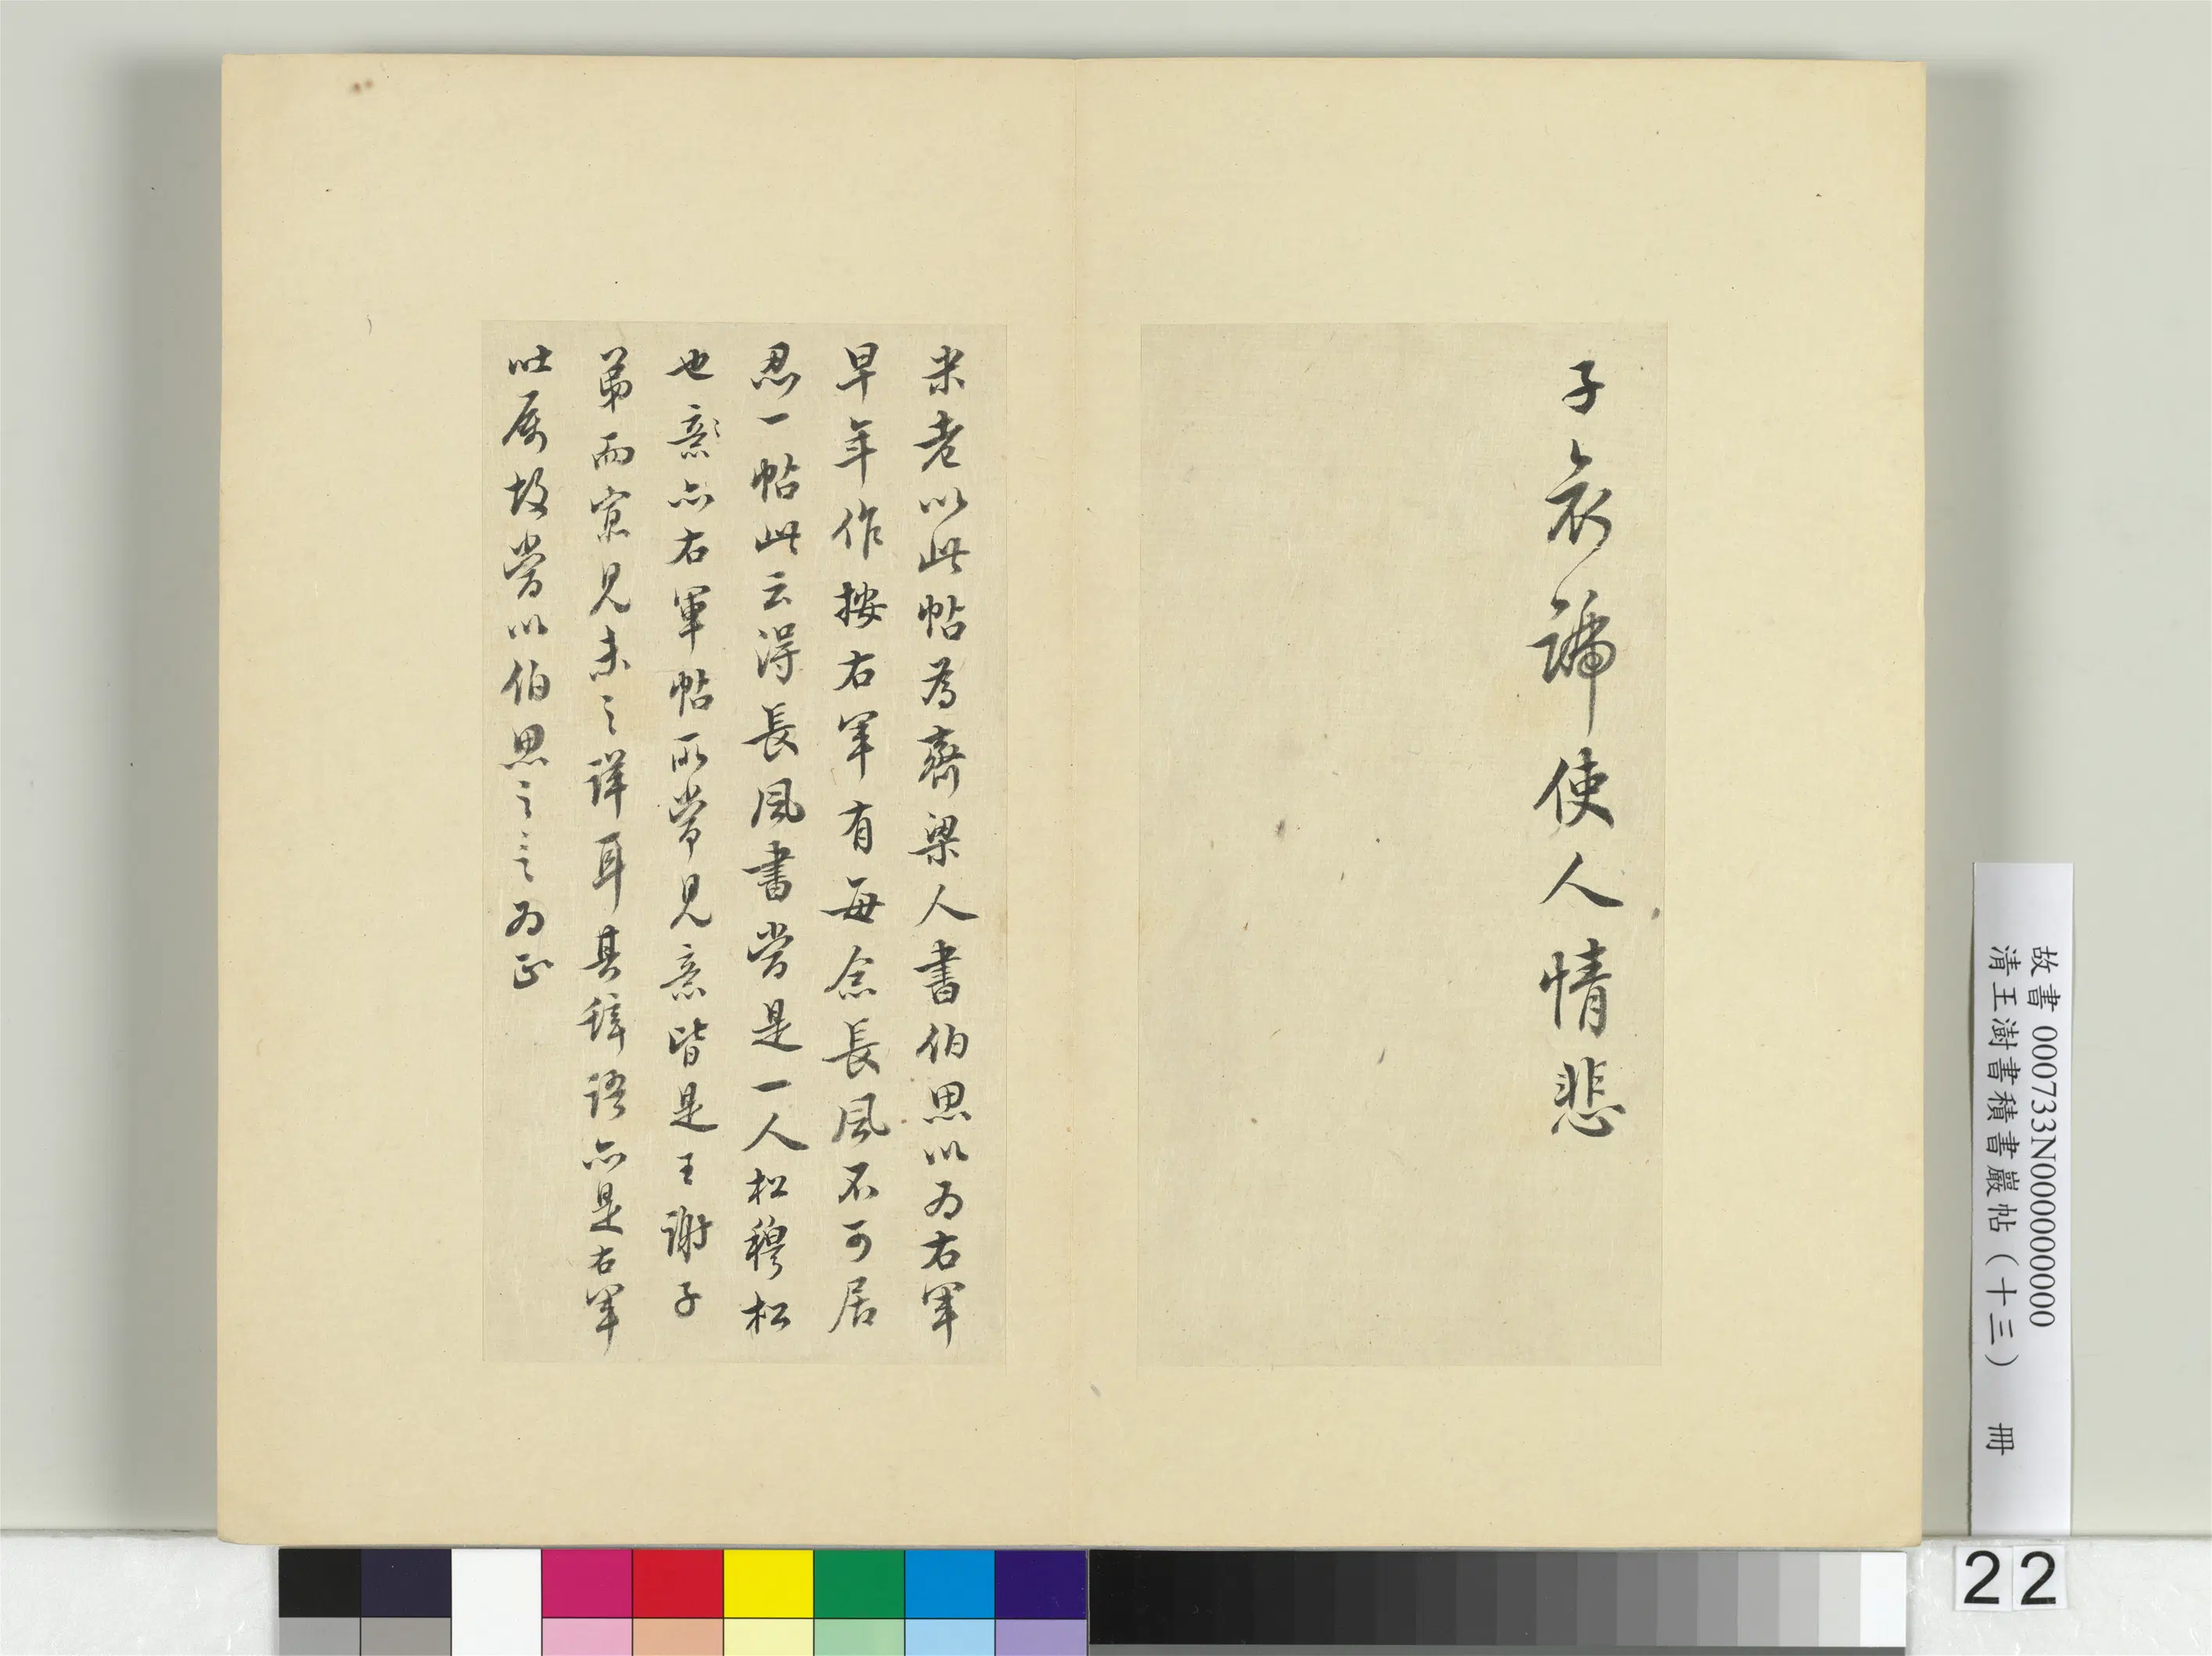 子哀號使人情悲
米老以此帖為齊梁人書伯思以為右軍
早年作按右軍有每念長風不可居
忍一帖此云得長風書當是一人松穆松
也意亦右軍帖所常見意皆是王謝子
弟而實見未之詳耳其辭語亦是右軍
吐屬故當以伯思之言為正
故書 000733N000000000
清王澍書積書巖帖（十三） 冊
22